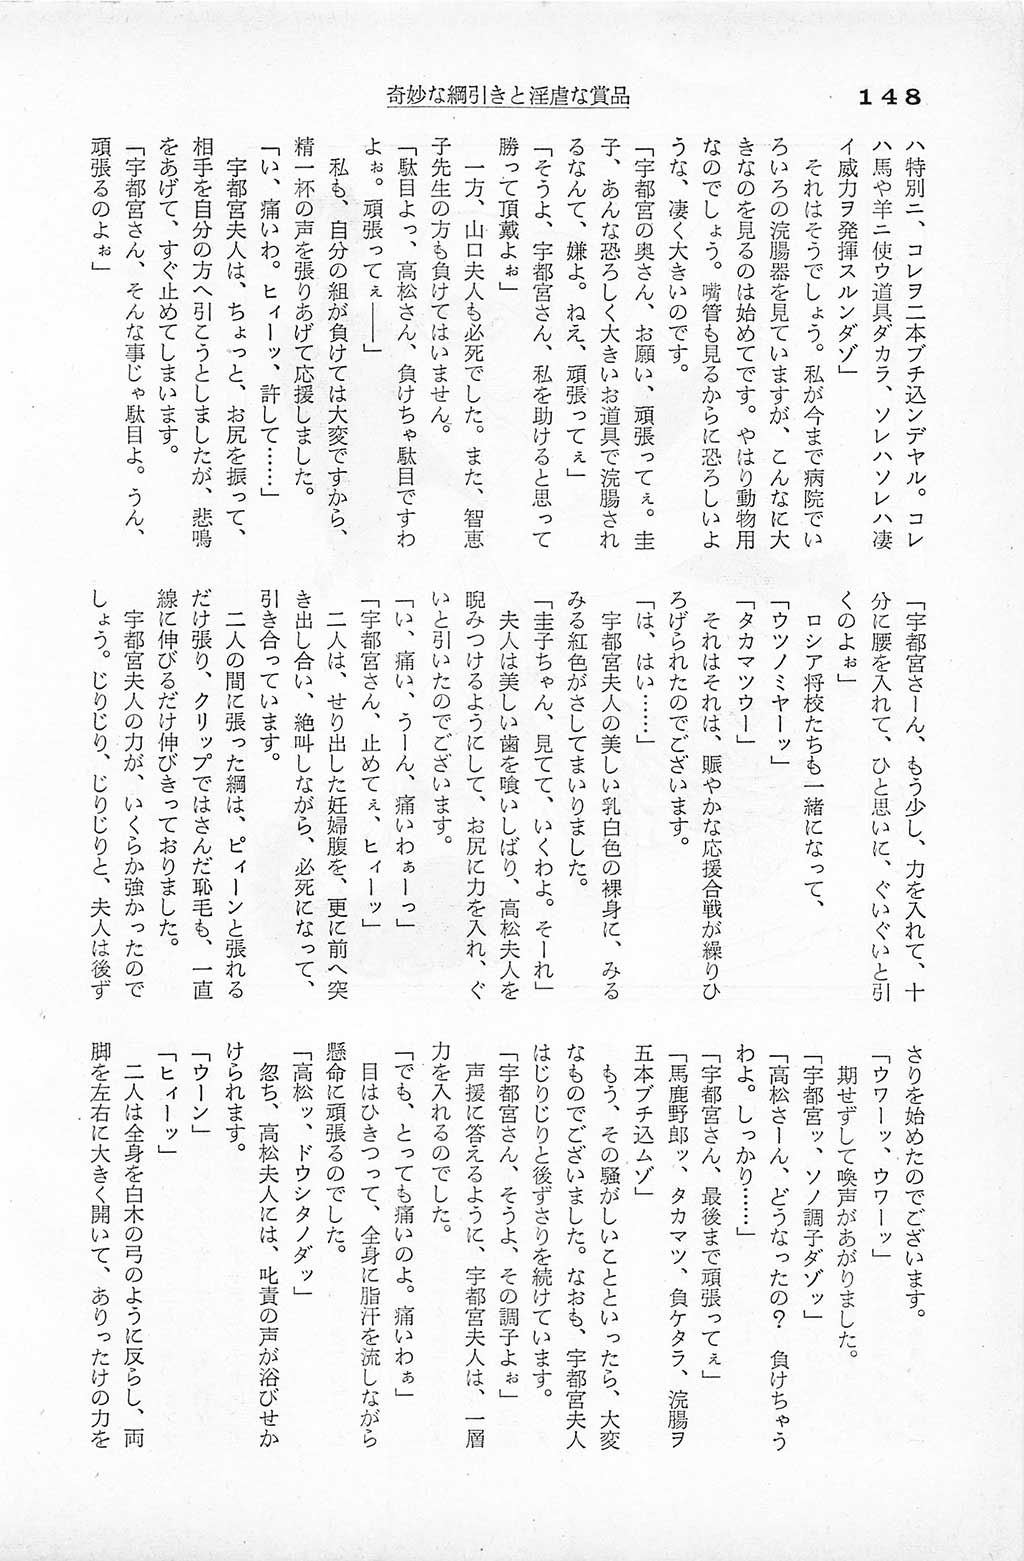 148
奇妙な綱引きと淫虐な賞品
ハ特別ニ、コレヲ二本ブチ込ンデヤル。コレ
ハ馬や羊ニ使ウ道具ダカラ、ソレハソレハ凄
イ威力ヲ発揮スルンダゾ」
　それはそうでしょう。私が今まで病院でい
ろいろの浣腸器を見ていますが、こんなに大
きなのを見るのは始めてです。やはり動物用
なのでしょう。嘴管も見るからに恐ろしいよ
うな、凄く大きいのです。
「宇都宮の奥さん、お願い、頑張ってぇ。圭
子、あんな恐ろしく大きいお道具で浣腸され
るなんて、嫌よ。ねえ、頑張ってぇ」
「そうよ、宇都宮さん、私を助けると思って
勝って頂戴よぉ」
　一方、山口夫人も必死でした。また、智恵
子先生の方も負けてはいません。
「駄目よっ、高松さん、負けちゃ駄目ですわ
よぉ。頑張ってぇ――」
　私も、自分の組が負けては大変ですから、
精一杯の声を張りあげて応援しました。
「い、痛いわ。ヒィーッ、許して……」
　宇都宮夫人は、ちょっと、お尻を振って、
相手を自分の方へ引こうとしましたが、悲鳴
をあげて、すぐ止めてしまいます。
「宇都宮さん、そんな事じゃ駄目よ。うん、
頑張るのよぉ」
「宇都宮さーん、もう少し、力を入れて、十
分に腰を入れて、ひと思いに、ぐいぐいと引
くのよぉ」
　ロシア将校たちも一緒になって、
「ウツノミヤーッ」
「タカマツウー」
　それはそれは、賑やかな応援合戦が繰りひ
ろげられたのでございます。
「は、はい……」
　宇都宮夫人の美しい乳白色の裸身に、みる
みる紅色がさしてまいりました。
「圭子ちゃん、見てて、いくわよ。そーれ」
　夫人は美しい歯を喰いしばり、高松夫人を
睨みつけるようにして、お尻に力を入れ、ぐ
いと引いたのでございます。
「い、痛い、うーん、痛いわぁーっ」
「宇都宮さん、止めてぇ、ヒィーッ」
　二人は、せり出した妊婦腹を、更に前へ突
き出し合い、絶叫しながら、必死になって、
引き合っています。
　二人の間に張った綱は、ピィーンと張れる
だけ張り、クリップではさんだ恥毛も、一直
線に伸びるだけ伸びきっておりました。
　宇都宮夫人の力が、いくらか強かったので
しょう。じりじり、じりじりと、夫人は後ず
さりを始めたのでございます。
「ウワーッ、ウワーッ」
　期せずして喚声があがりました。
「宇都宮ッ、ソノ調子ダゾッ」
「高松さーん、どうなったの？　負けちゃう
わよ。しっかり……」
「宇都宮さん、最後まで頑張ってぇ」
「馬鹿野郎ッ、タカマツ、負ケタラ、浣腸ヲ
五本ブチ込ムゾ」
　もう、その騒がしいことといったら、大変
なものでございました。なおも、宇都宮夫人
はじりじりと後ずさりを続けています。
「宇都宮さん、そうよ、その調子よぉ」
　声援に答えるように、宇都宮夫人は、一層
力を入れるのでした。
「でも、とっても痛いのよ。痛いわぁ」
　目はひきつって、全身に脂汗を流しながら
懸命に頑張るのでした。
「高松ッ、ドウシタノダッ」
　忽ち、高松夫人には、叱責の声が浴びせか
けられます。
「ウーン」
「ヒィーッ」
　二人は全身を白木の弓のように反らし、両
脚を左右に大きく開いて、ありったけの力を